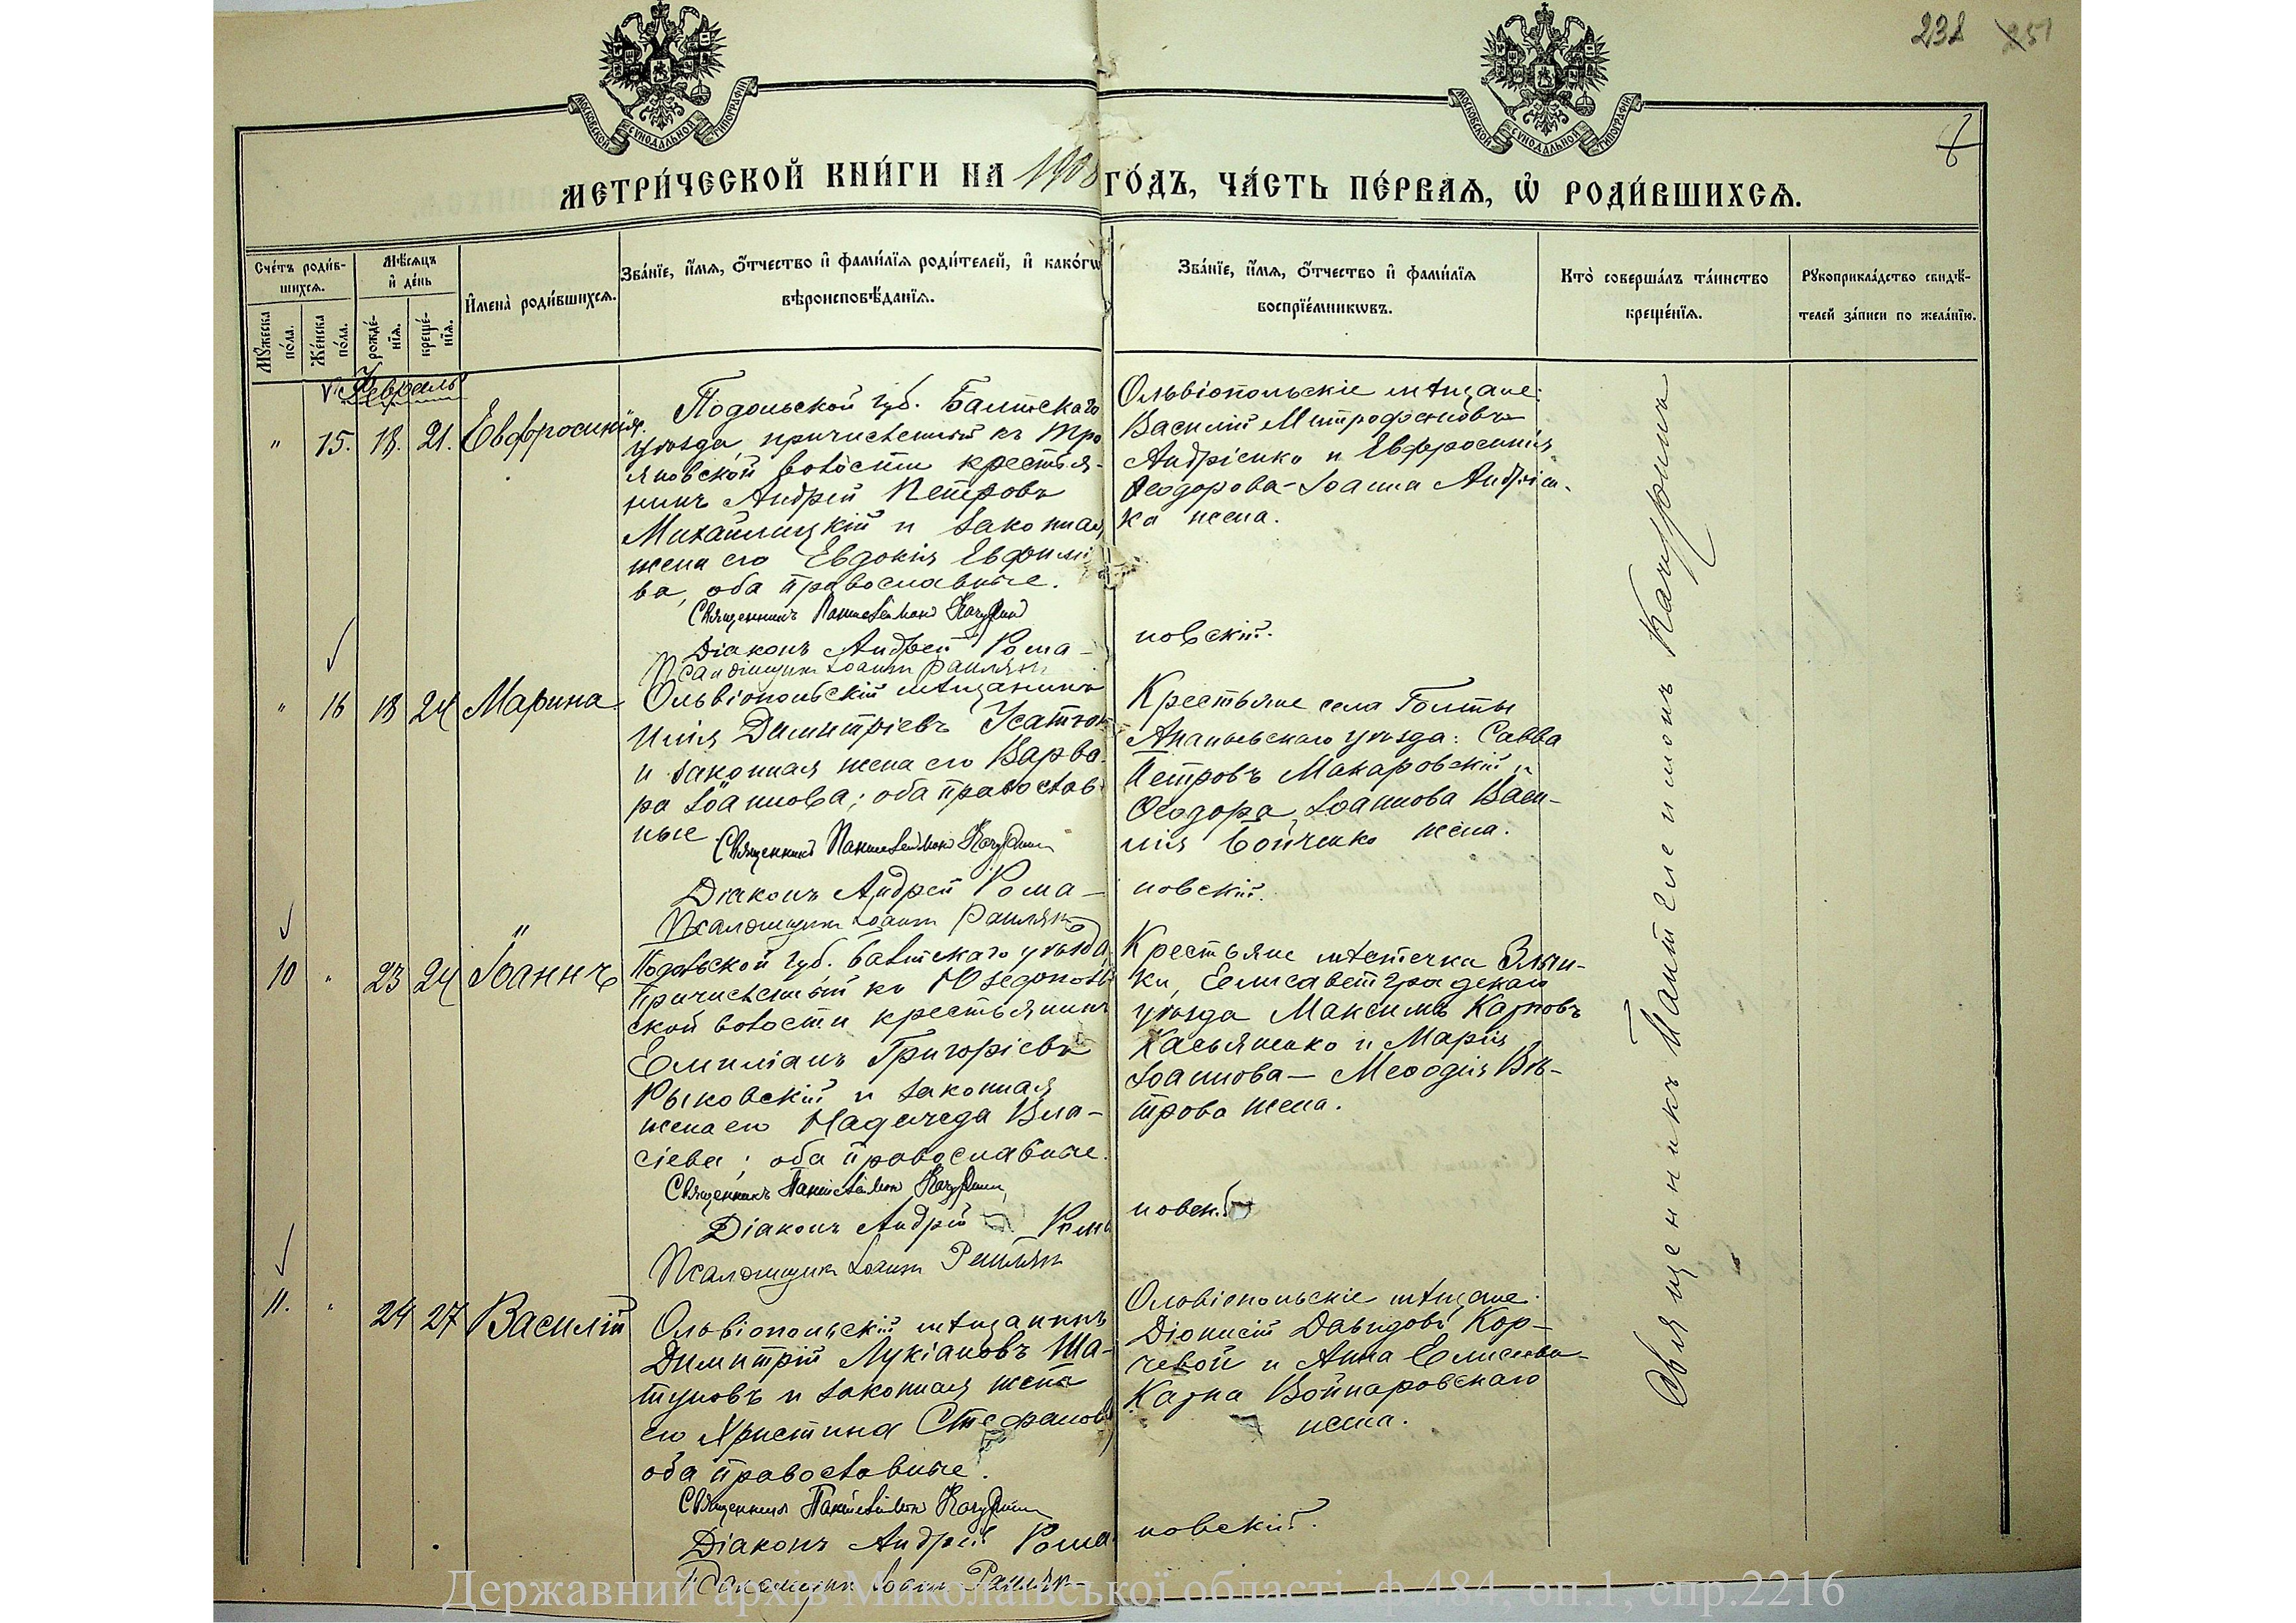 238 251
МОСКОВСКОЙ СѴНОДАЛЬНОЙ ТИПОГРАФІИ
МОСКОВСКОЙ СѴНОДАЛЬНОЙ ТИПОГРАФІИ
МЕТРИ́ЧЕСКОЙ КНИ́ГИ НА 1908 ГО́ДЪ, ЧА́СТЬ ПЕ́РВАѦ, Ѡ҆ РОДИ́ВШИХСѦ.
Сче́тъ роди́в-
шихсѧ.
Мѣ́сѧцъ
и҆ де́нь
Мꙋ́жеска по́ла.
Же́нска по́ла.
рожде́-нїѧ.
креще́-нїѧ.
И҆мена̀ роди́вшихсѧ.
Зва́нїе, и҆́мѧ, ѻ҆́тчество и҆ фами́лїѧ роди́телей, и҆ како́гѡ
вѣроисповѣ́данїѧ.
Зва́нїе, и҆́мѧ, ѻ҆́тчество и҆ фами́лїѧ
воспрїе́мникѡвъ.
Кто̀ соверша́лъ та́инство
креще́нїѧ.
Рꙋкоприкла́дство свидѣ́-
телей за́писи по жела́нїю.
Февраль
" 15. 18. 21. Евфросинія.
Подольской губ. Балтскаго
уѣзда, причисленный къ Тро
яновской волости крестья-
нинъ Андрей Петровъ
Михайлицкій и законная
жена его Евдокія Евфимі
ва, оба православные.
Священникъ Пантелеимонъ
Діаконъ Андрей Рома-
Псаломщикъ Іоаннъ
Ольвіопольскіе мѣщане:
Василій Митрофановъ
Андріенко и Евфросинія
Ѳеодорова - Іоанна Андріен-
ка жена.
новскій.
" 16 18 24 Марина
Ольвіопольскій мѣщанинъ
Илія Димитріевъ Усатюк
и законная жена его Варва-
ра Іоаннова; оба православ-
ные
Священникъ Пантелеимонъ
Діаконъ Андрей Рома-
Псаломщикъ Іоаннъ
Крестьяне села Голты
Ананьевскаго уѣзда: Савва
Петровъ Макаровскій и
Ѳеодора Іоаннова Васи-
лія Бойченко жена.
новскій.
10 " 23 24 Іоаннъ
Подольской губ. Балтскаго уѣзда,
причисленный къ
ской волости крестьянинъ
Емиліанъ Григоріевъ
Рыковскій и законная
жена его Надежда Вла-
сіева; оба православные.
Священникъ Пантелеимонъ
Діаконъ Андрей Рома
Псаломщикъ Іоаннъ
Крестьяне мѣстечка Злын-
ки, Елисаветградскаго
уѣзда Максимъ Карповъ
Касьяненко и Марія
Іоаннова - Меѳодія Вѣ-
трова жена.
новск
11. " 24 27 Василій
Ольвіопольскій мѣщанинъ
Димитрій Лукіановъ Ша-
туновъ и законная жена
его Христина Стефанова
оба православные.
Священникъ Пантелеимонъ
Діаконъ Андрей Рома
Псаломщикъ Іоаннъ
Ольвіопольскіе мѣщане:
Діонисій Давидовъ Кор-
чевой и Анна Елисеева -
Карпа Войнаровскаго
жена.
новскій.
Священникъ Пантелеимонъ
Державний архів Миколаївської області, ф.484, оп.1, спр.2216